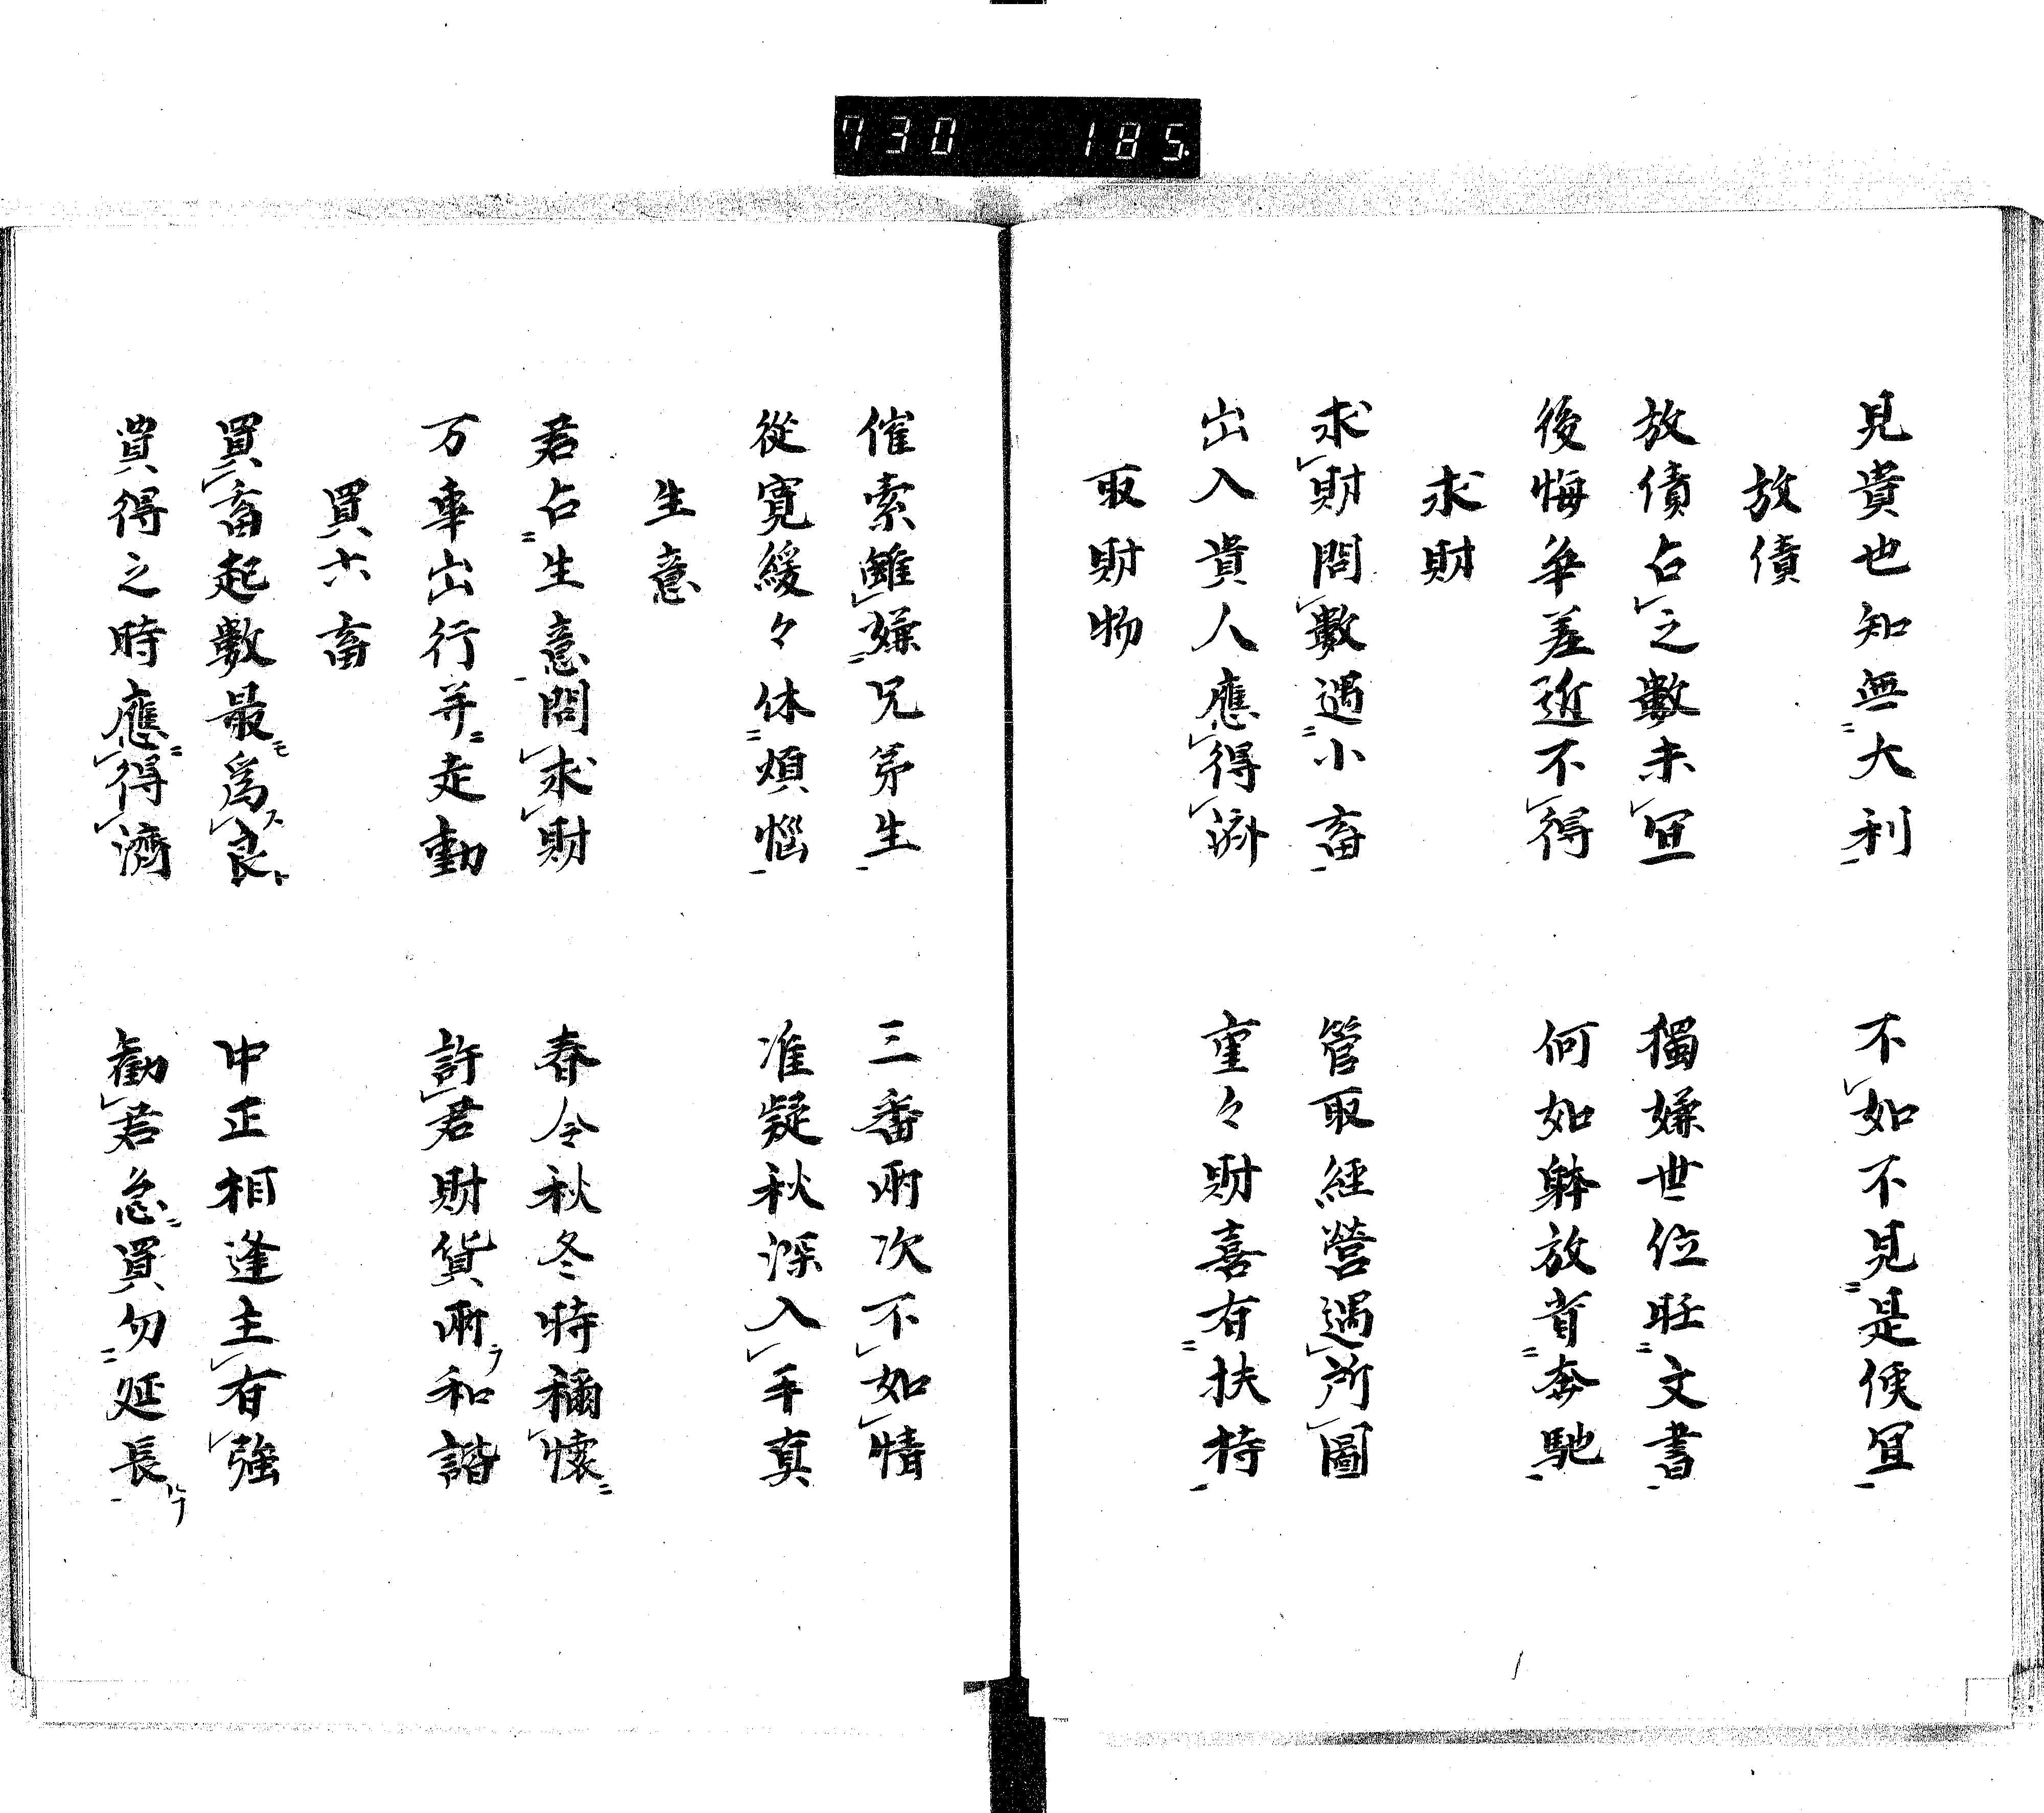 730 185
見貴也知無大利 不如不見是便宜
放債
放債占之數未宜 獨嫌世位旺文書
後悔年差近不得 何如躰放省奔馳
求財
求財問數遇小畜 管取經營遇所圖
出入貴人應得濟 重々財喜有扶持
取財物
催索雖嫌兄弟生 三番兩次不如情
從寛緩々休煩惱 准擬秋深入手真
生意
君占生意問求財 春令秋冬時稱懷
万車出行并走動 許君財貨兩和諧
買六畜
買畜起數最爲良 中正相逢主有強
買得之時應得濟 勸君急買勿延長